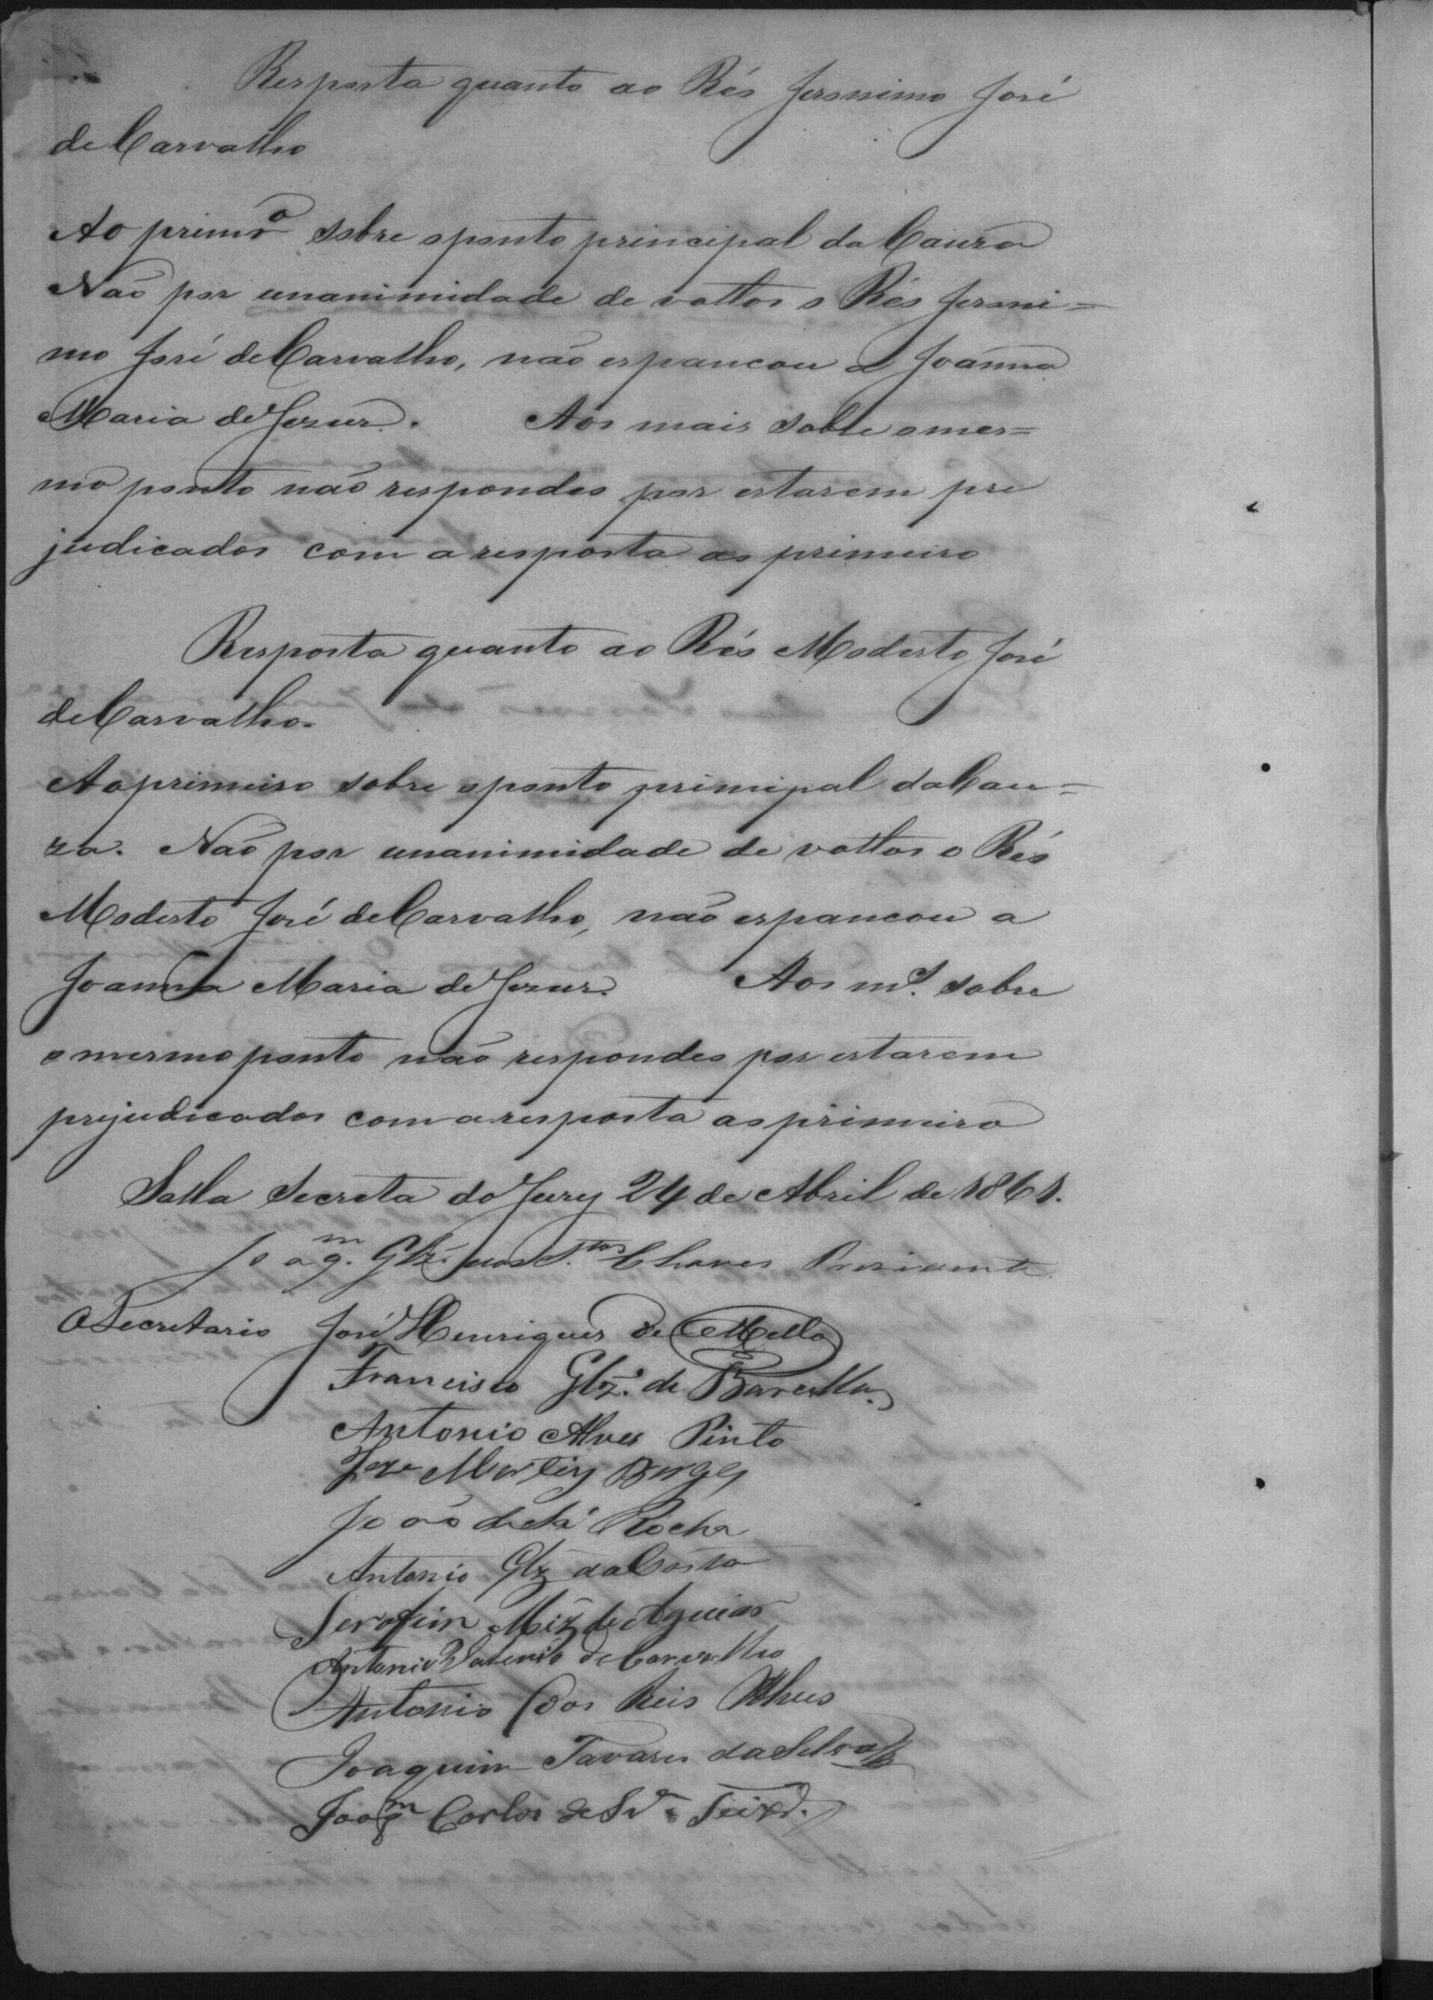 Resposta quanto ao Réo Jeronimo José
de Carvalho
Ao primrº sobre o ponto principal da Cauza
Não por unanimidade de vottos o Réo Jeroni=
mo José de Carvalho, não espancou a Joanna
Maria de Jezus. Aos mais sobre o mes=
mo ponto não respondeo por estarem pre
judicados com a resposta ao primeiro
Resposta quanto ao Réo Modesto José
de Carvalho.
Ao primeiro sobre o ponto principal da Cau=
za. Não por unanimidade de vottos o Réo
Modesto José de Carvalho, não espancou a
Joanna Maria de Jezus. Aos ms. sobre
o mesmo ponto não respondeo por estarem
prejudicados com a resposta ao primeiro
Salla Secreta do Jury 24 de Abril de 1861.
Joaqm. Glz. dos S.tos Chaves Prezidente
O Secretario José Henriques de Mello
Francisco Glz. de Barcellos
Antonio Alves Pinto
Jose Martins Borges
João de Sá Rocha
Antonio Glz da Costa
Serafim Miz de Aguiar
Antonio de Carvalho
Antonio dos Reis
Joaquim Tavares da Silva
Joaqm Carlos de Sva Teixrª.